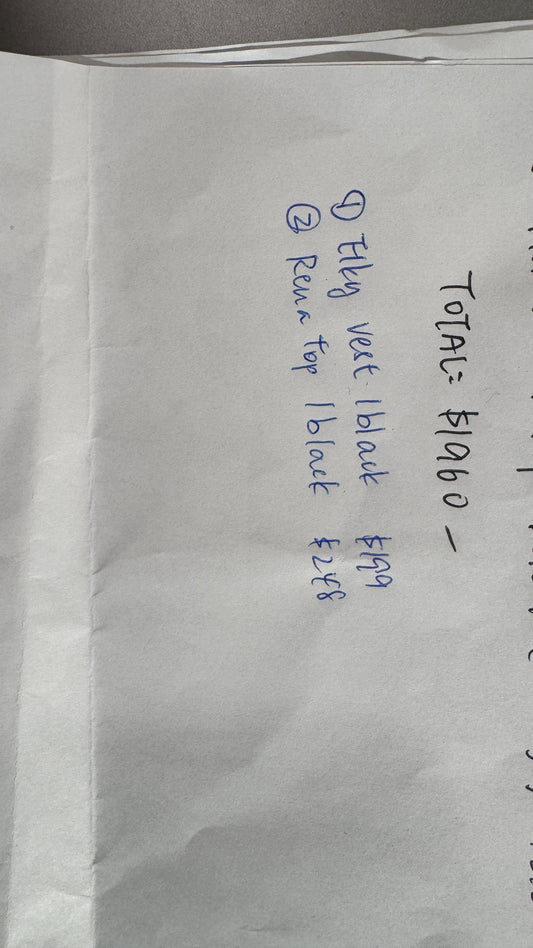 TOTAL = $1960 –
① Elky vest. 1 black $199
② Rena top 1 black $248